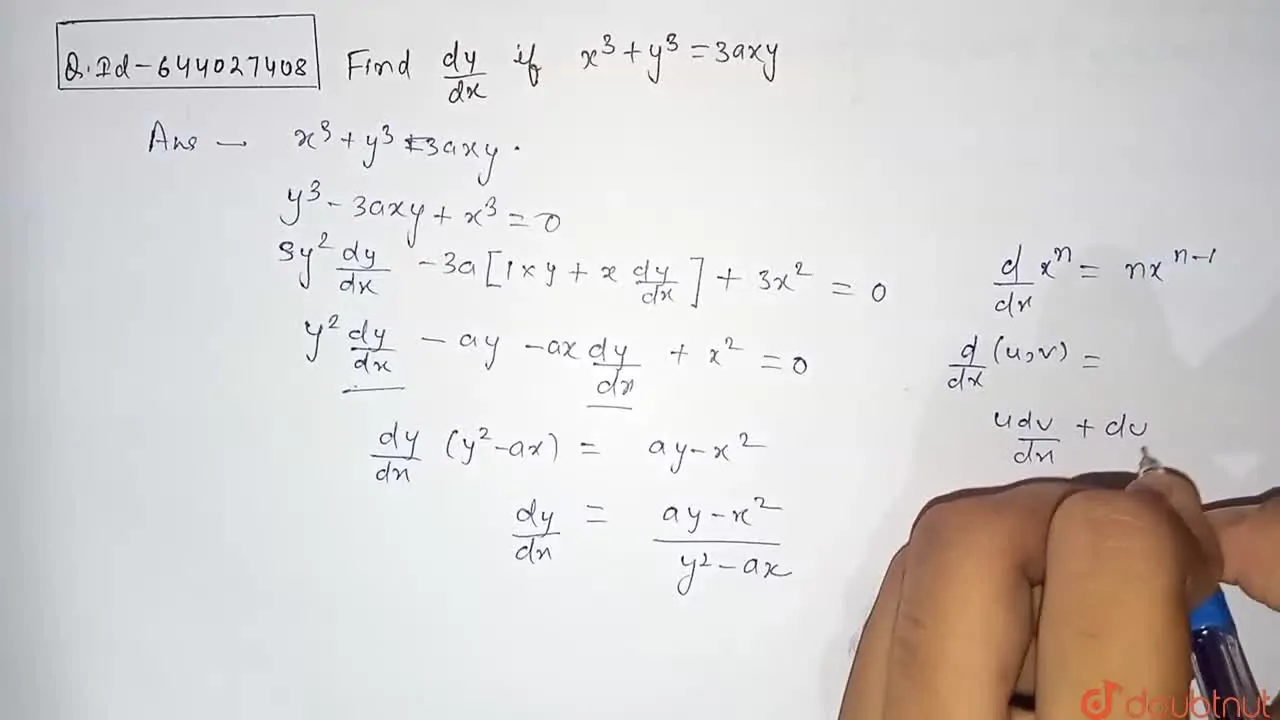 Q.Id-644027408 Find dy/dx if x³ + y³ = 3axy
Ans → x³ + y³ = 3axy .
y³ - 3axy + x³ = 0
3y² dy/dx - 3a [1×y + x dy/dx] + 3x² = 0
y² dy/dx - ay - ax dy/dx + x² = 0
dy/dx (y² - ax) = ay - x²
dy/dx = ay - x² / y² - ax
d/dx xⁿ = nxⁿ⁻¹
d/dx (u,v) =
u dv/dx + du
doubtnut